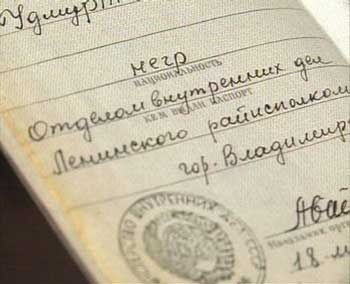 Удмурт
негр
НАЦИОНАЛЬНОСТЬ
Отделом внутренних дел
КЕМ ВЫДАН ПАСПОРТ
Ленинского райисполком
гор. Владимир
Авай
Начальник орг
18-м
ВНУТРЕННИХ ДЕЛ